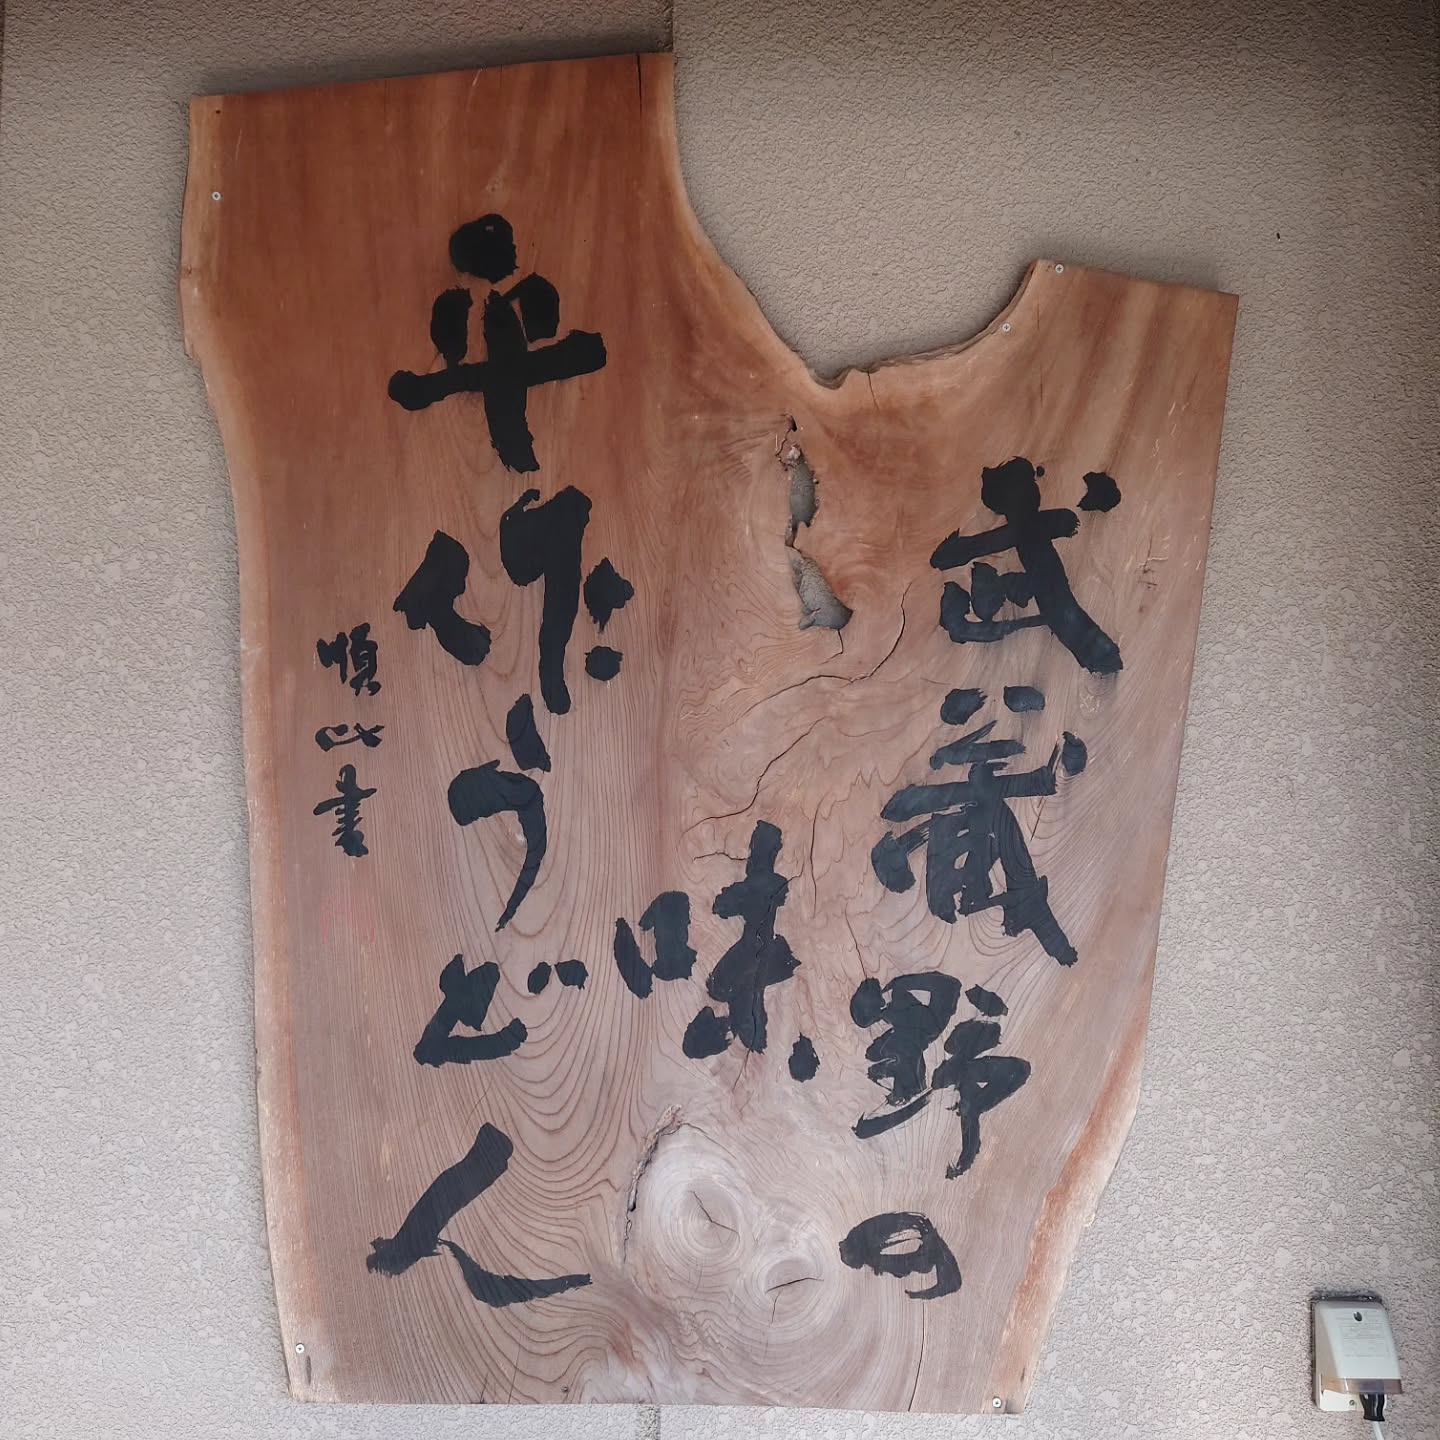 武蔵野の
味
平作うどん
順此書